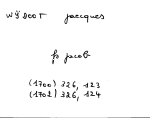 wÿdoot jacques
fs jacob
(1700) 326, 123
(1702) 326, 124